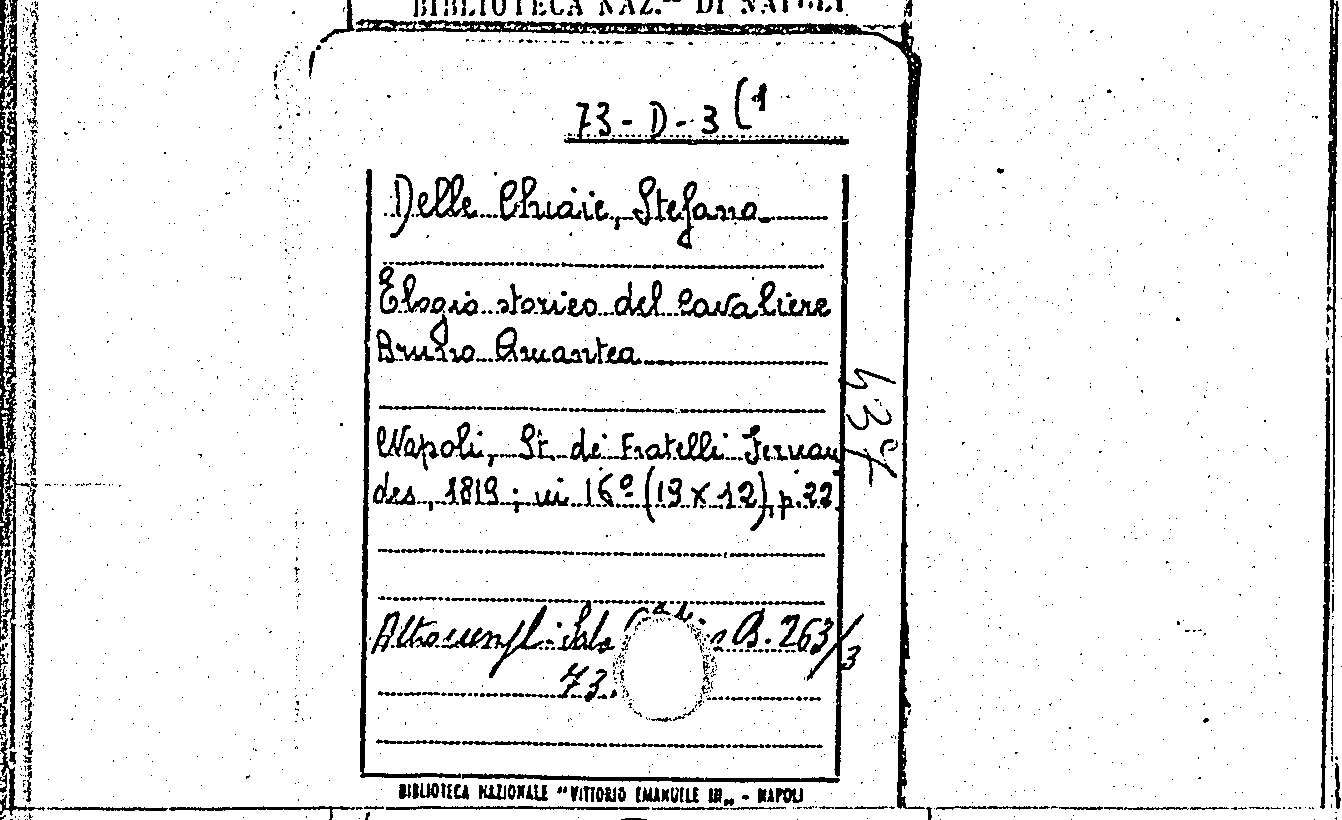 BIBLIOTECA NAZ.le DI NAPOLI
73-D-3 (1
Delle Chiaie, Stefano
Elogio storico del Cavaliere
Bruno Amantea
Napoli, St. de' Fratelli Fernan
des, 1819; in 16º (19 x 12), p. 22
Altro esempl. Sala B. 263/3
73.
BIBLIOTECA NAZIONALE "VITTORIO EMANUELE III„ - NAPOLI